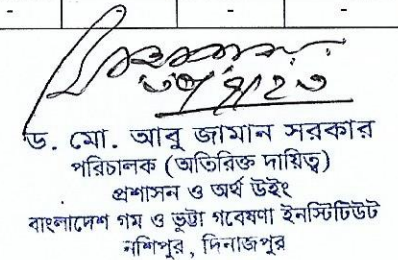 - - - -
ড. মো. আবু জামান সরকার
পরিচালক (অতিরিক্ত দায়িত্ব)
প্রশাসন ও অর্থ উইং
বাংলাদেশ গম ও ভুট্টা গবেষণা ইনস্টিটিউট
নশিপুর, দিনাজপুর